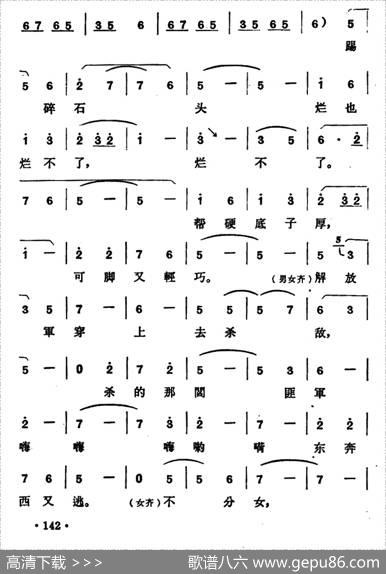 6 7 6 5 | 3 5 6 | 6 7 6 5 | 6 7 6 5 | 3 5 6 5 | 6 ) 5
踢
5 6 | 2 7 | 7 6 | 5 — | 5 — | 1 6
碎石 头 烂也
1 3 | 2 3 2 | 1 — | 3 — | 3 5 | 6 · 2
烂不了, 烂 不 了。
7 6 | 5 — | 5 — | 1 6 | 1 3 | 2 3 2
帮硬底子厚,
1 — | 2 2 | 7 6 | 5 — | 5 5 | 6 3
可脚又輕巧。(男女齐)解放
3 5 | 7 — | 2 — | 5 5 | 7 6 | 3
軍穿 上 去杀 敌,
5 — | 0 2 | 7 2 | 5 — | 5 3 | 6 —
杀的那閻 匪軍
2 — | 7 — | 7 3 | 2 — | 1 — | 2 2
嗨 嗨 嗨喲 嗬 东奔
7 6 | 5 — | 0 5 | 5 6 | 7 — | 7 —
西又逃。(女齐)不 分女,
· 142 ·
高清下载 >>>
歌谱八六 www.gepu86.com